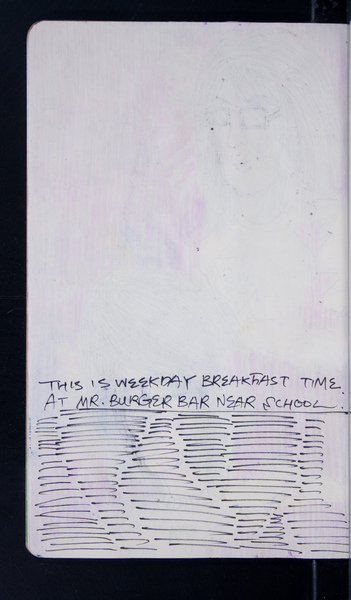 THIS IS WEEKDAY BREAKFAST TIME
AT MR. BURGER BAR NEAR SCHOOL.